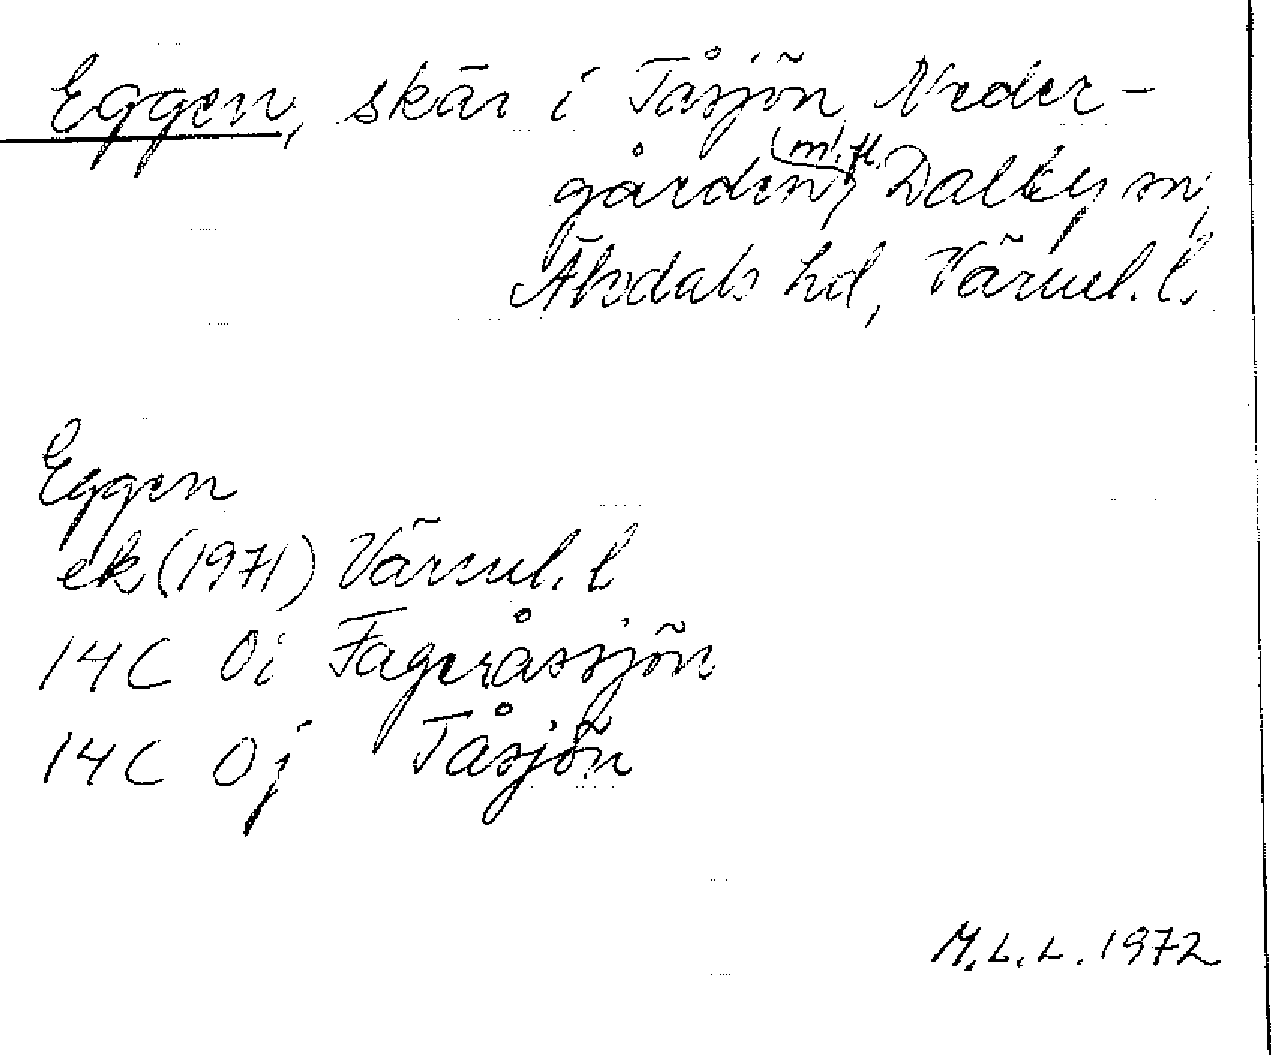 Eggen, skär i Tåsjön, Neder-
gården, m.fl. Dalby sn,
Älvdals hd, Värml. l.
Eggen
ek (1971) Värml. l
14C 0i Fageråssjön
14C 0j Tåsjön
M.L.L. 1972